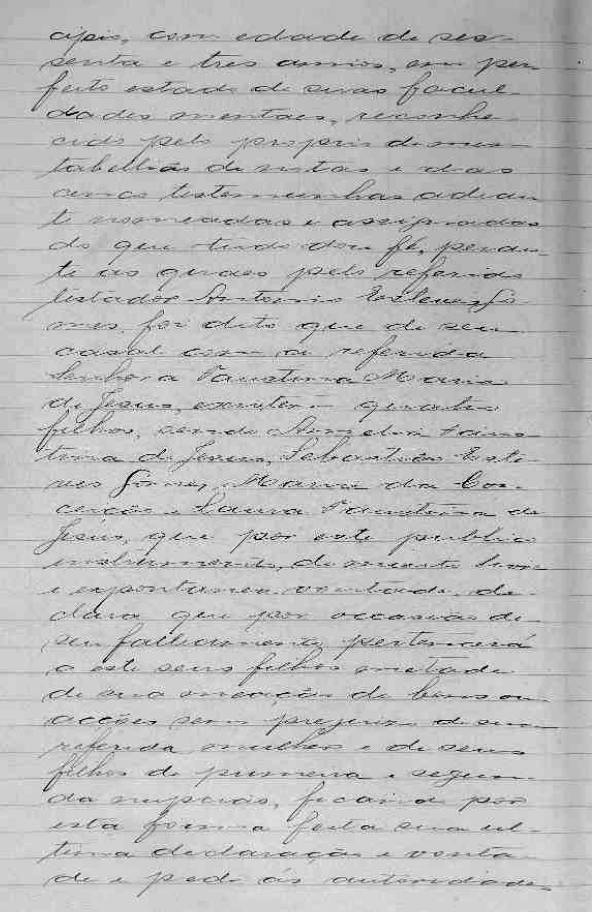 cipio, com edade de ses-
senta e tres annos, em per
feito estado de suas facul
dades mentaes, reconhe
cido pelo proprio de mim
tabellião de notas e das
cinco testemunhas adean
te nomeadas e assignadas
do que tudo dou fé, peran-
te as quaes pelo referido
testador Antonio Esteves Go
mes, foi dito que de seu
casal com a referida
Senhora Faustina Maria
de Jesus, existem quatro
filhos, sendo Faus-
tina de Jesus, Sebastião Este-
ves Gomes, Maria da Con-
ceição e Laura Faustina de
Jesus, que por este publico
instrumento, de sua livre
e expontanea vontade, de-
clara que por occasião de
seu fallecimento pertencerá
a este seus filhos metade
de sua meação de bens ou
acções sem prejuizo de sua
referida mulher e de seus
filhos de primeira e segun-
da nupcias, ficando por
esta forma feita sua ul-
tima declaração e vonta-
de e pede ás autoridades